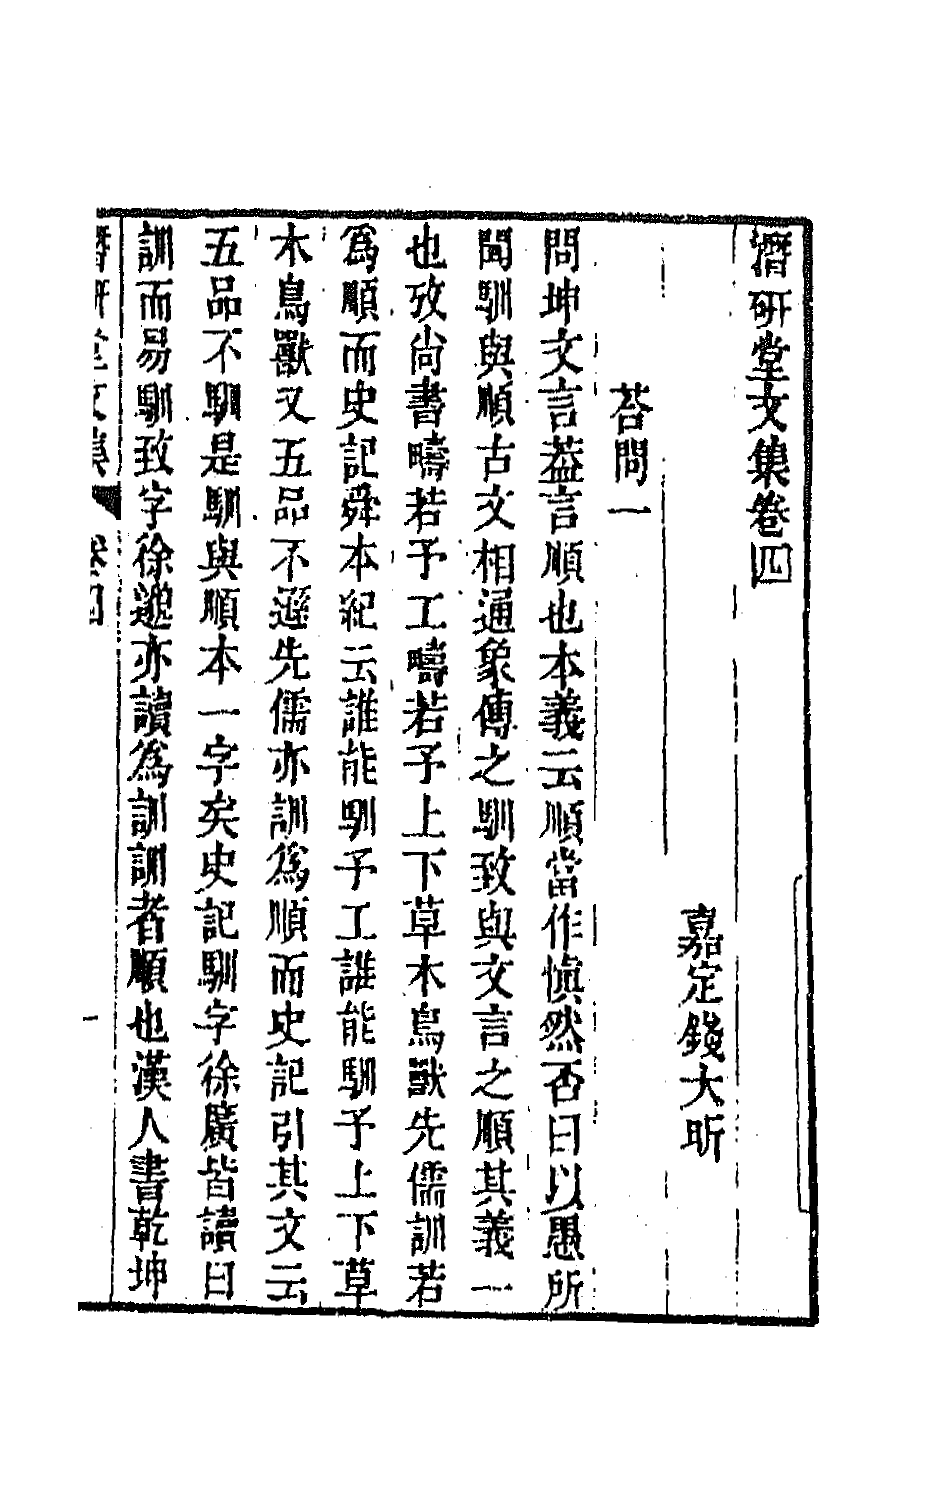 潛研堂文集卷四
嘉定錢大昕
荅問一
問坤文言葢言順也本義云順當作愼然否曰以愚所
聞馴與順古文相通象傳之馴致與文言之順其義一
也攷尚書疇若予工疇若予上下草木鳥獸先儒訓若
爲順而史記舜本紀云誰能馴予工誰能馴予上下草
木鳥獸又五品不遜先儒亦訓爲順而史記引其文云
五品不馴是馴與順本一字矣史記馴字徐廣皆讀曰
訓而易馴致字徐邈亦讀爲訓訓者順也漢人書乾坤
潛研堂文集 卷四 一